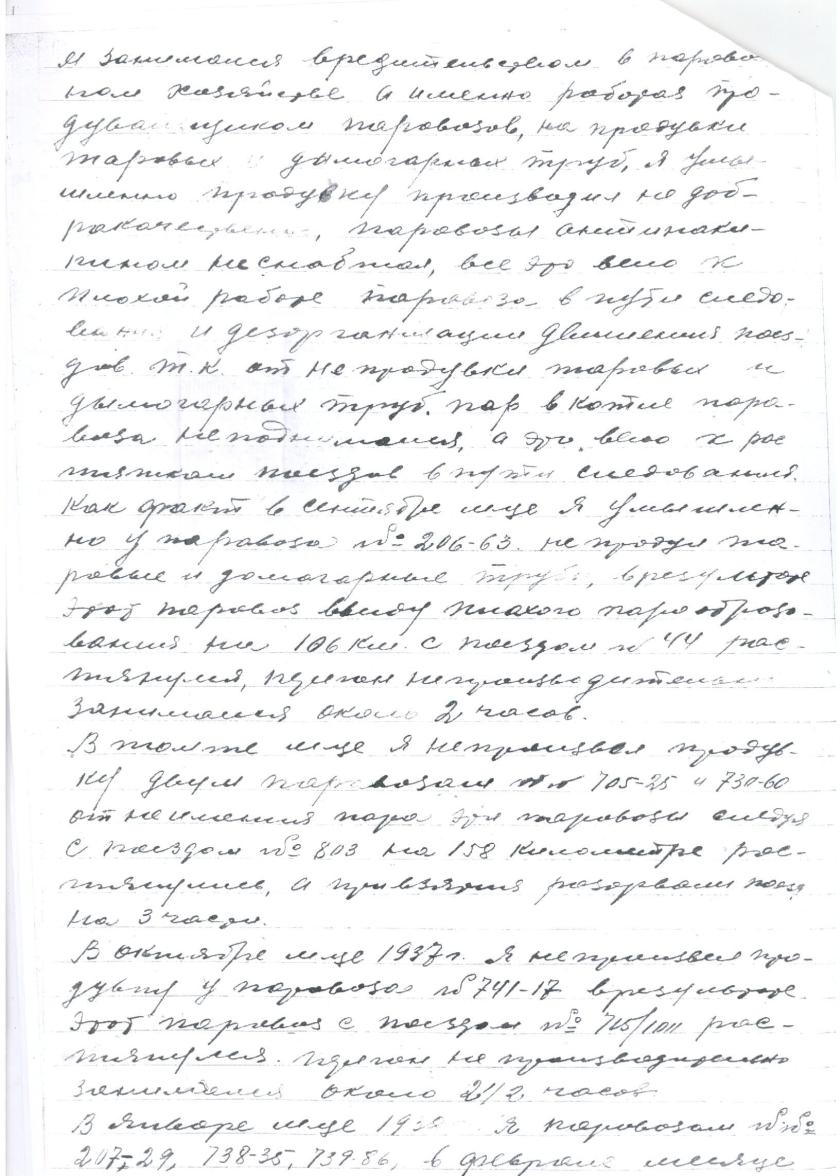 Я занимался вредительством в парово-
ном хозяйстве а именно работая про-
дувальщиком паровозов, на продувки
жаровых и дымогарных труб, я умы-
шленно продувку производил не доб-
рокачественно, паровозы антинаки-
пином не снабжал, все это вело к
плохой работе паровоза в пути следо-
вания и дезорганизации движения поез-
дов т.к. от не продувки жаровых и
дымогарных труб. пар в котле паро-
воза не поднимался, а это вело к рас
тяжкам поездов в пути следования.
Как факт в сентябре м-це я умышлен-
но у паровоза № 206-63. не продул жа-
ровые и домогарные трубы, в результате
этот паровоз ввиду плохого парообразо-
вания на 106 км. с поездом № 44 рас-
тянулся, перегон непроизводительно
занимался около 2 часов.
В томже м-це я не произвел продув-
ку двум паровозам №№ 705-25 и 730-60
от неимения пара эти паровозы следуя
с поездом № 803 на 158 километре рас-
тянулись, а при взятия разорвали поезд
на 3 части.
В октябре м-це 1937 г. я не произвел про-
дувку у паровоза № 741-17 в результате
этот паровоз с поездом № 715/1011 рас-
тянулся. перегон не производительно
занимался около 2 1/2 часов
В январе м-це я паровозам №№
207-29, 738-35, 739-86, в феврале месяце